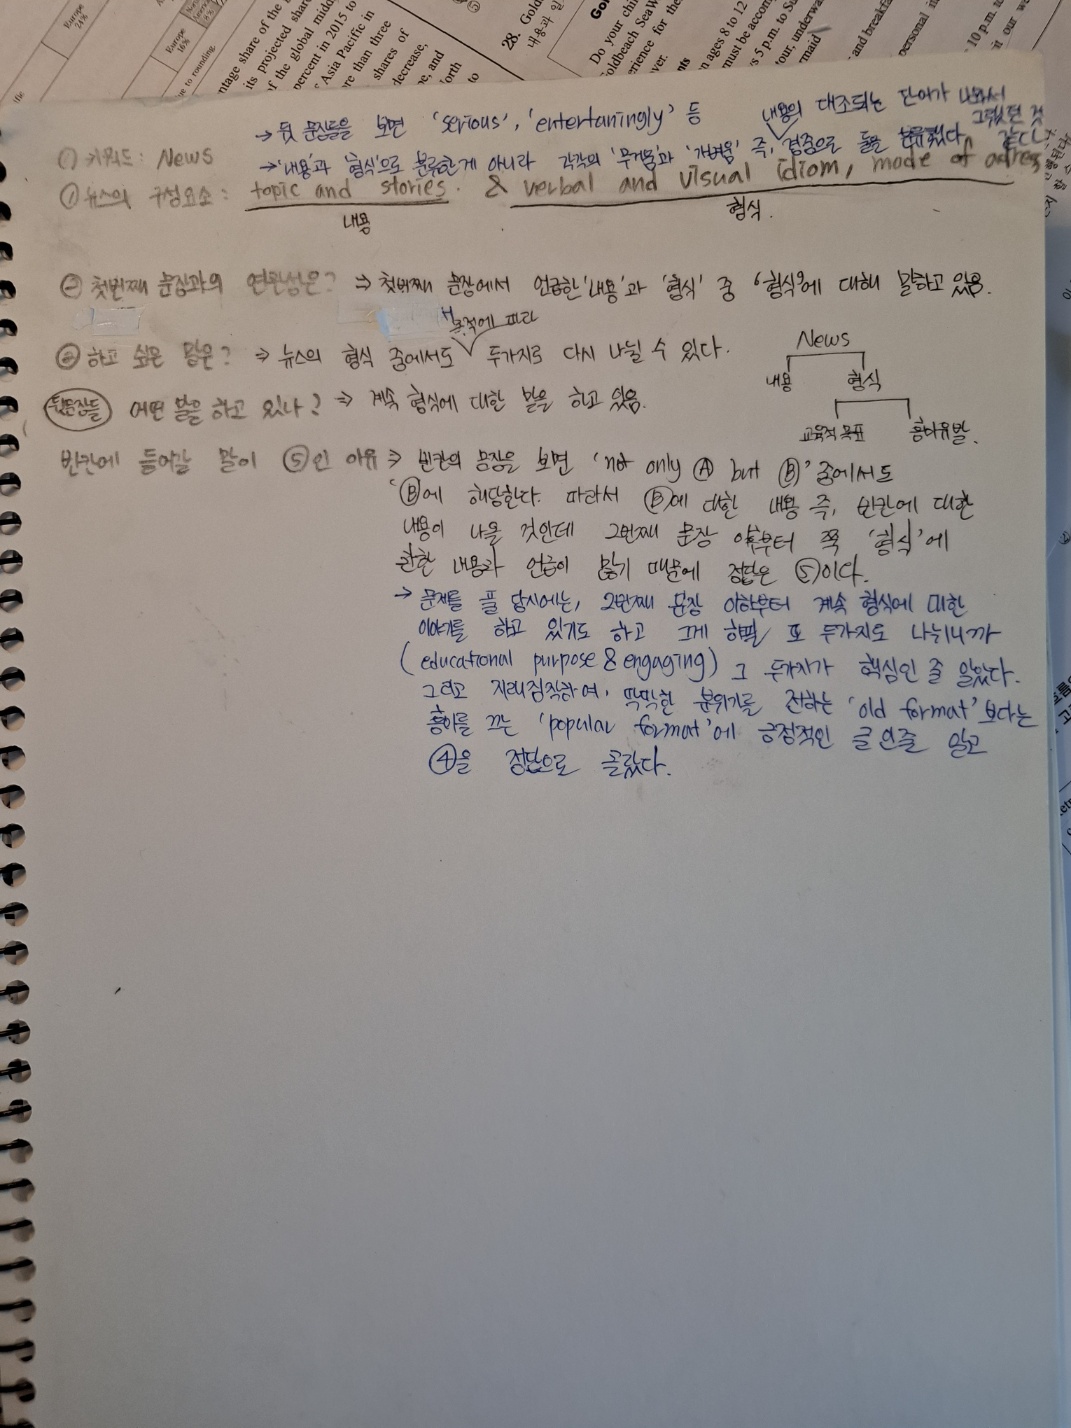 Europe
24%
Europe
16%
to rounding.
ntage share of the
its projected share
of the global midd
percent in 2015 to
Asia Pacific in
re than three
shares of
decrease,
pe, and
orth
to
⑤
28. Gold
내용과 일
Go
Do your chil
oldbeach SeaW
erience for the
ver.
nts
n ages 8 to 12
must be accom
s 5 p.m. to Su
tour, underwa
rmaid
and breakfa
personal it
10 p.m. to
it our we
→ 뒷 문장들을 보면 'serious', 'entertaningly' 등 내용의 대조되는 단어가 나와서 그랬던 것 같다
→ '내용'과 '형식'으로 분류한게 아니라 각각의 '무거움'과 '가벼움' 즉, 경중으로 둘을 분류했다.
① 키워드: News
① 뉴스의 구성요소: topic and stories. & verbal and visual idiom, mode of adress
내용
형식.
② 첫번째 문장과의 연관성은? ⇒ 첫번째 문장에서 언급한 '내용'과 '형식' 중 '형식'에 대해 말하고 있음.
목적에 따라
② 하고 싶은 말은? ⇒ 뉴스의 형식 중에서도 두가지로 다시 나뉠 수 있다.
News
내용 형식
교육적 목표 흥미유발.
뒷문장들 어떤 말을 하고 있나? ⇒ 계속 형식에 대한 말을 하고 있음.
빈칸에 들어갈 말이 ⑤인 이유 ⇒ 빈칸의 문장을 보면 'not only Ⓐ but Ⓑ' 중에서도
Ⓑ에 해당한다. 따라서 Ⓑ에 대한 내용 즉, 빈칸에 대한
내용이 나올 것인데 2번째 문장 이후부터 쭉 '형식'에
관한 내용과 언급이 많기 때문에 정답은 ⑤이다.
→ 문제를 풀 당시에는, 2번째 문장 이하부터 계속 형식에 대한
이야기를 하고 있기도 하고 그게 하필 또 두가지로 나뉘니까
(educational purpose & engaging) 그 두가지가 핵심인 줄 알았다.
그리고 지레짐작하여, 딱딱한 분위기를 전하는 'old format' 보다는
흥미를 끄는 'popular format'에 긍정적인 글인줄 알고
④을 정답으로 골랐다.